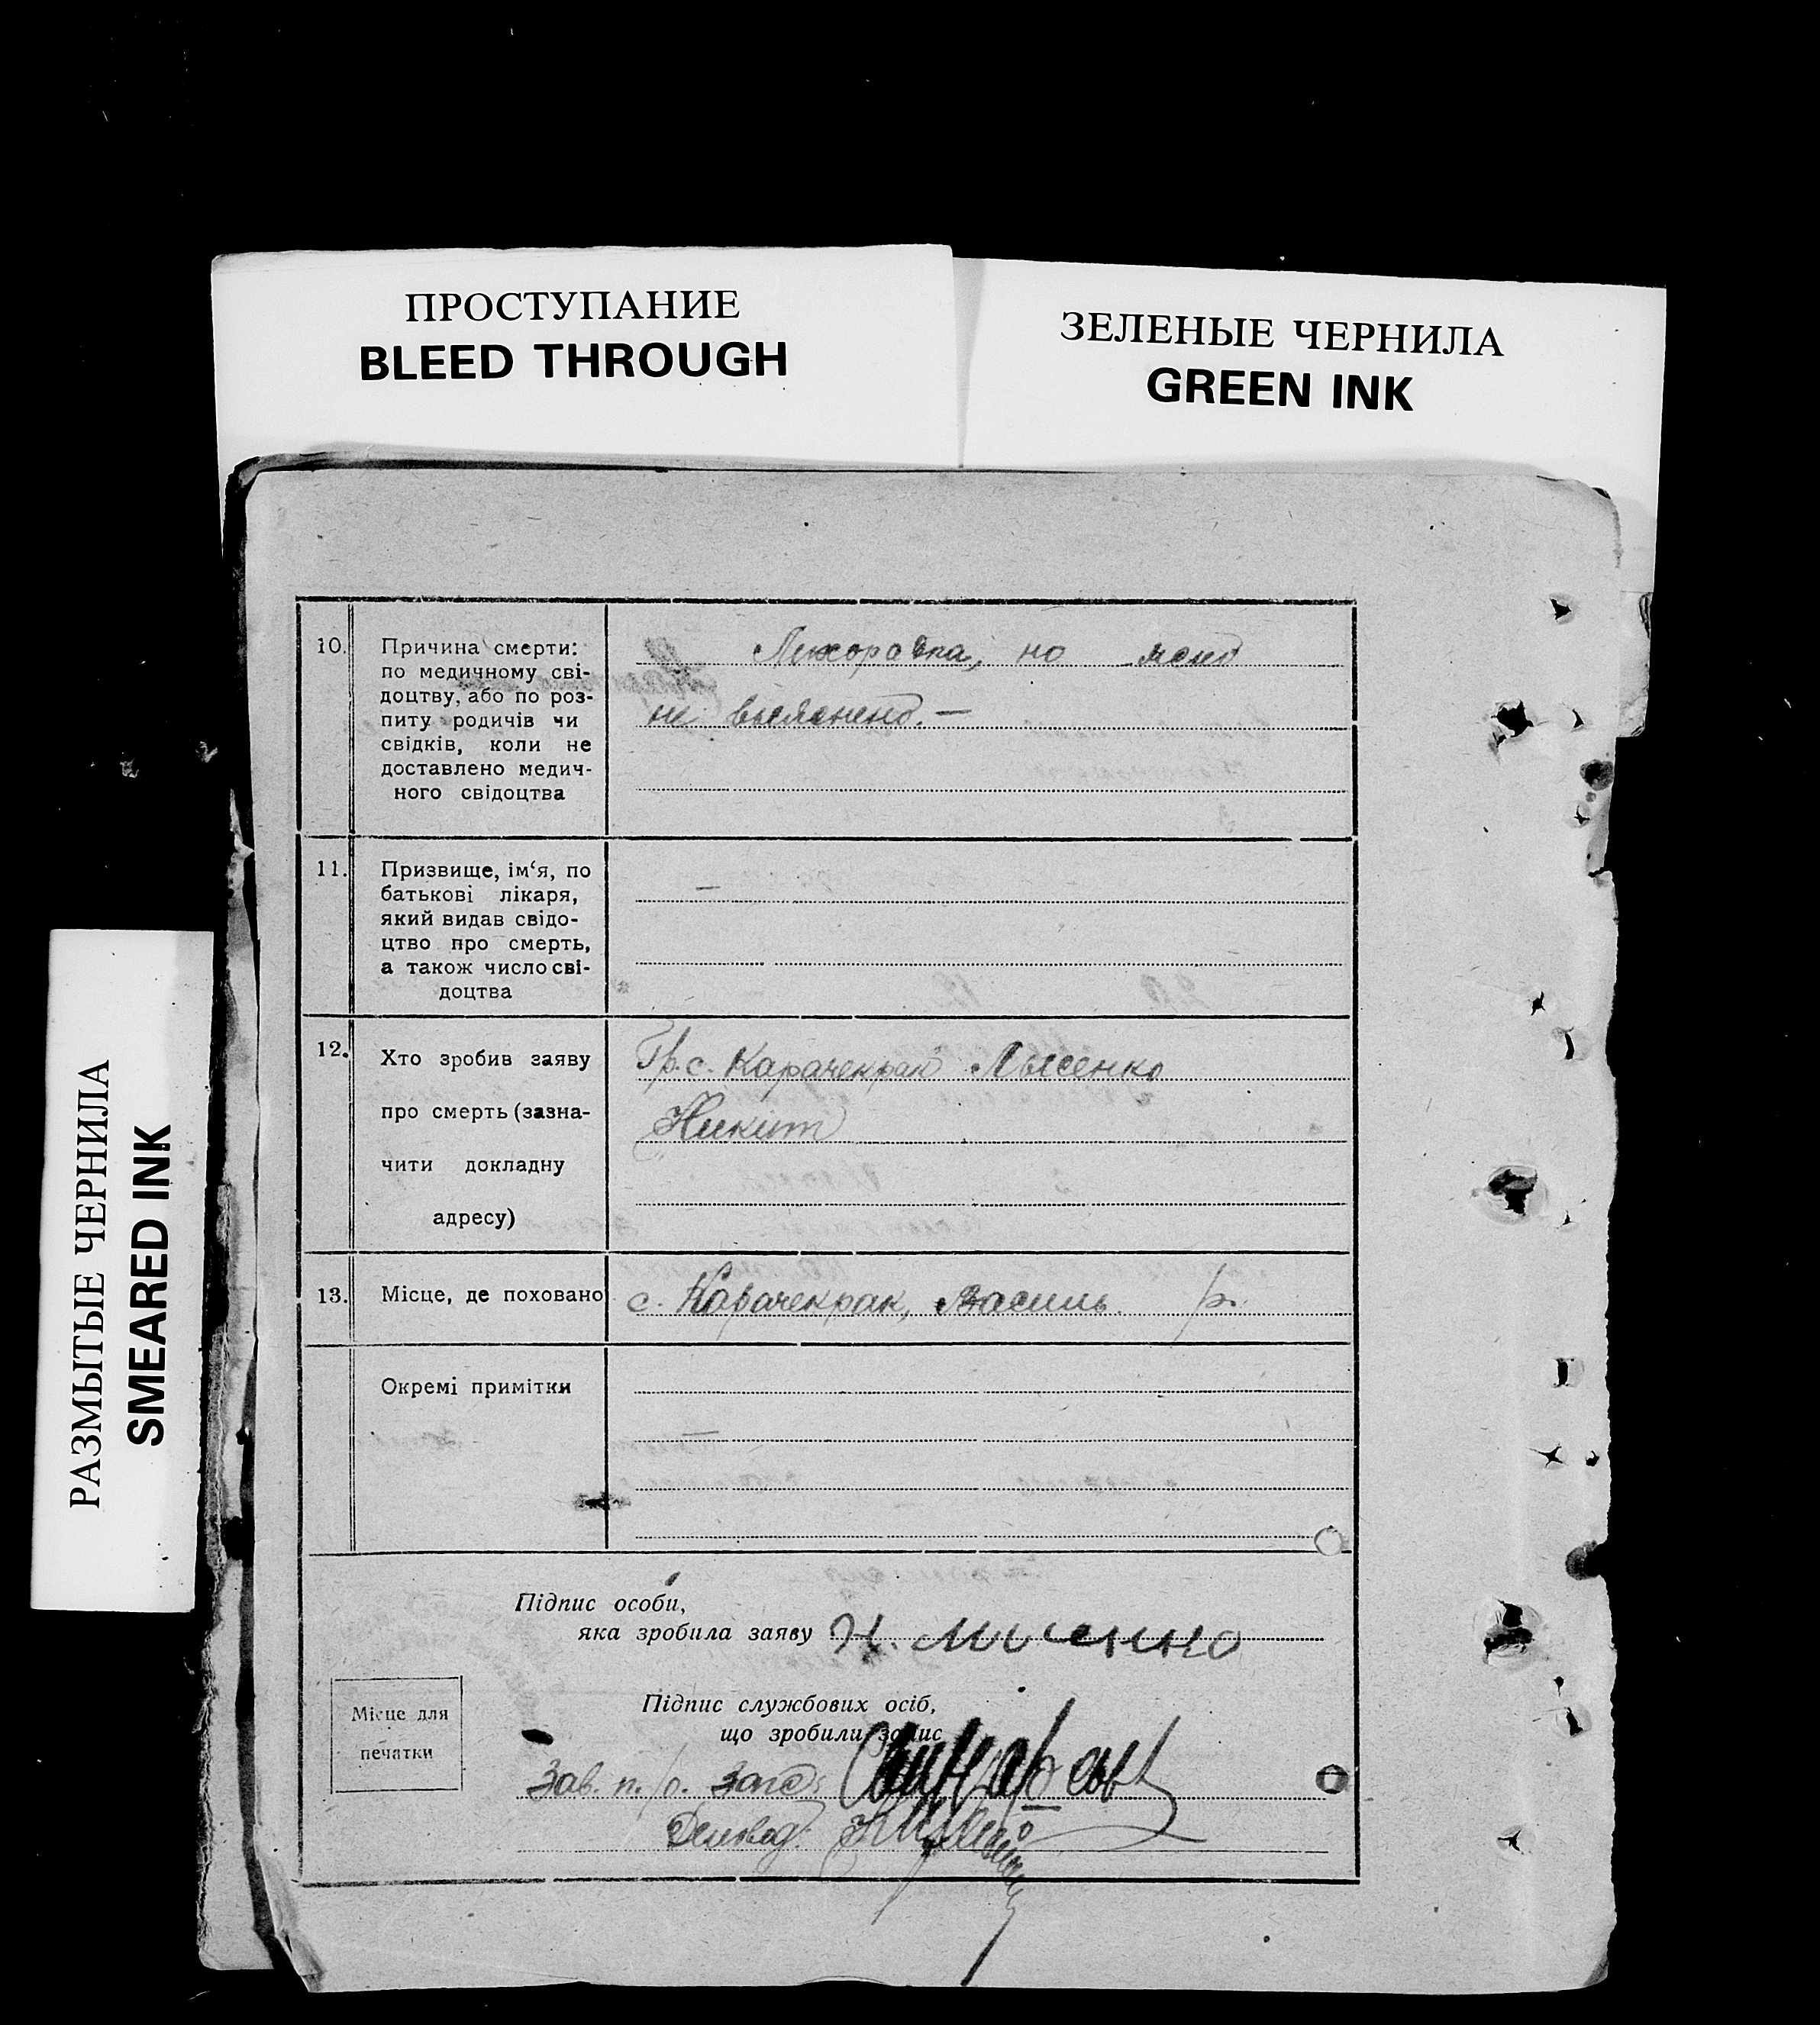 ПРОСТУПАНИЕ
BLEED THROUGH
ЗЕЛЕНЫЕ ЧЕРНИЛА
GREEN INK
РАЗМЫТЫЕ ЧЕРНИЛА
SMEARED INK
10. Причина смерти:
по медичному сві-
доцтву, або по роз-
питу родичів чи
свідків, коли не
доставлено медич-
ного свідоцтва
Лихорадка, но
не
11. Призвище, ім‘я, по
батькові лікаря,
який видав свідо-
цтво про смерть,
а також число сві-
доцтва
—
12. Хто зробив заяву
про смерть (зазна-
чити докладну
адресу)
Гр. с. Карачекрак Лысенко
Никит
13. Місце, де поховано
с. Карачекрак, Василь. р.
Окремі примітки
Підпис особи,
яка зробила заяву Н. Лисенко
Місце для
печатки
Підпис службових осіб,
що зробили запис
Зав. п./о. Загс
Деловод.